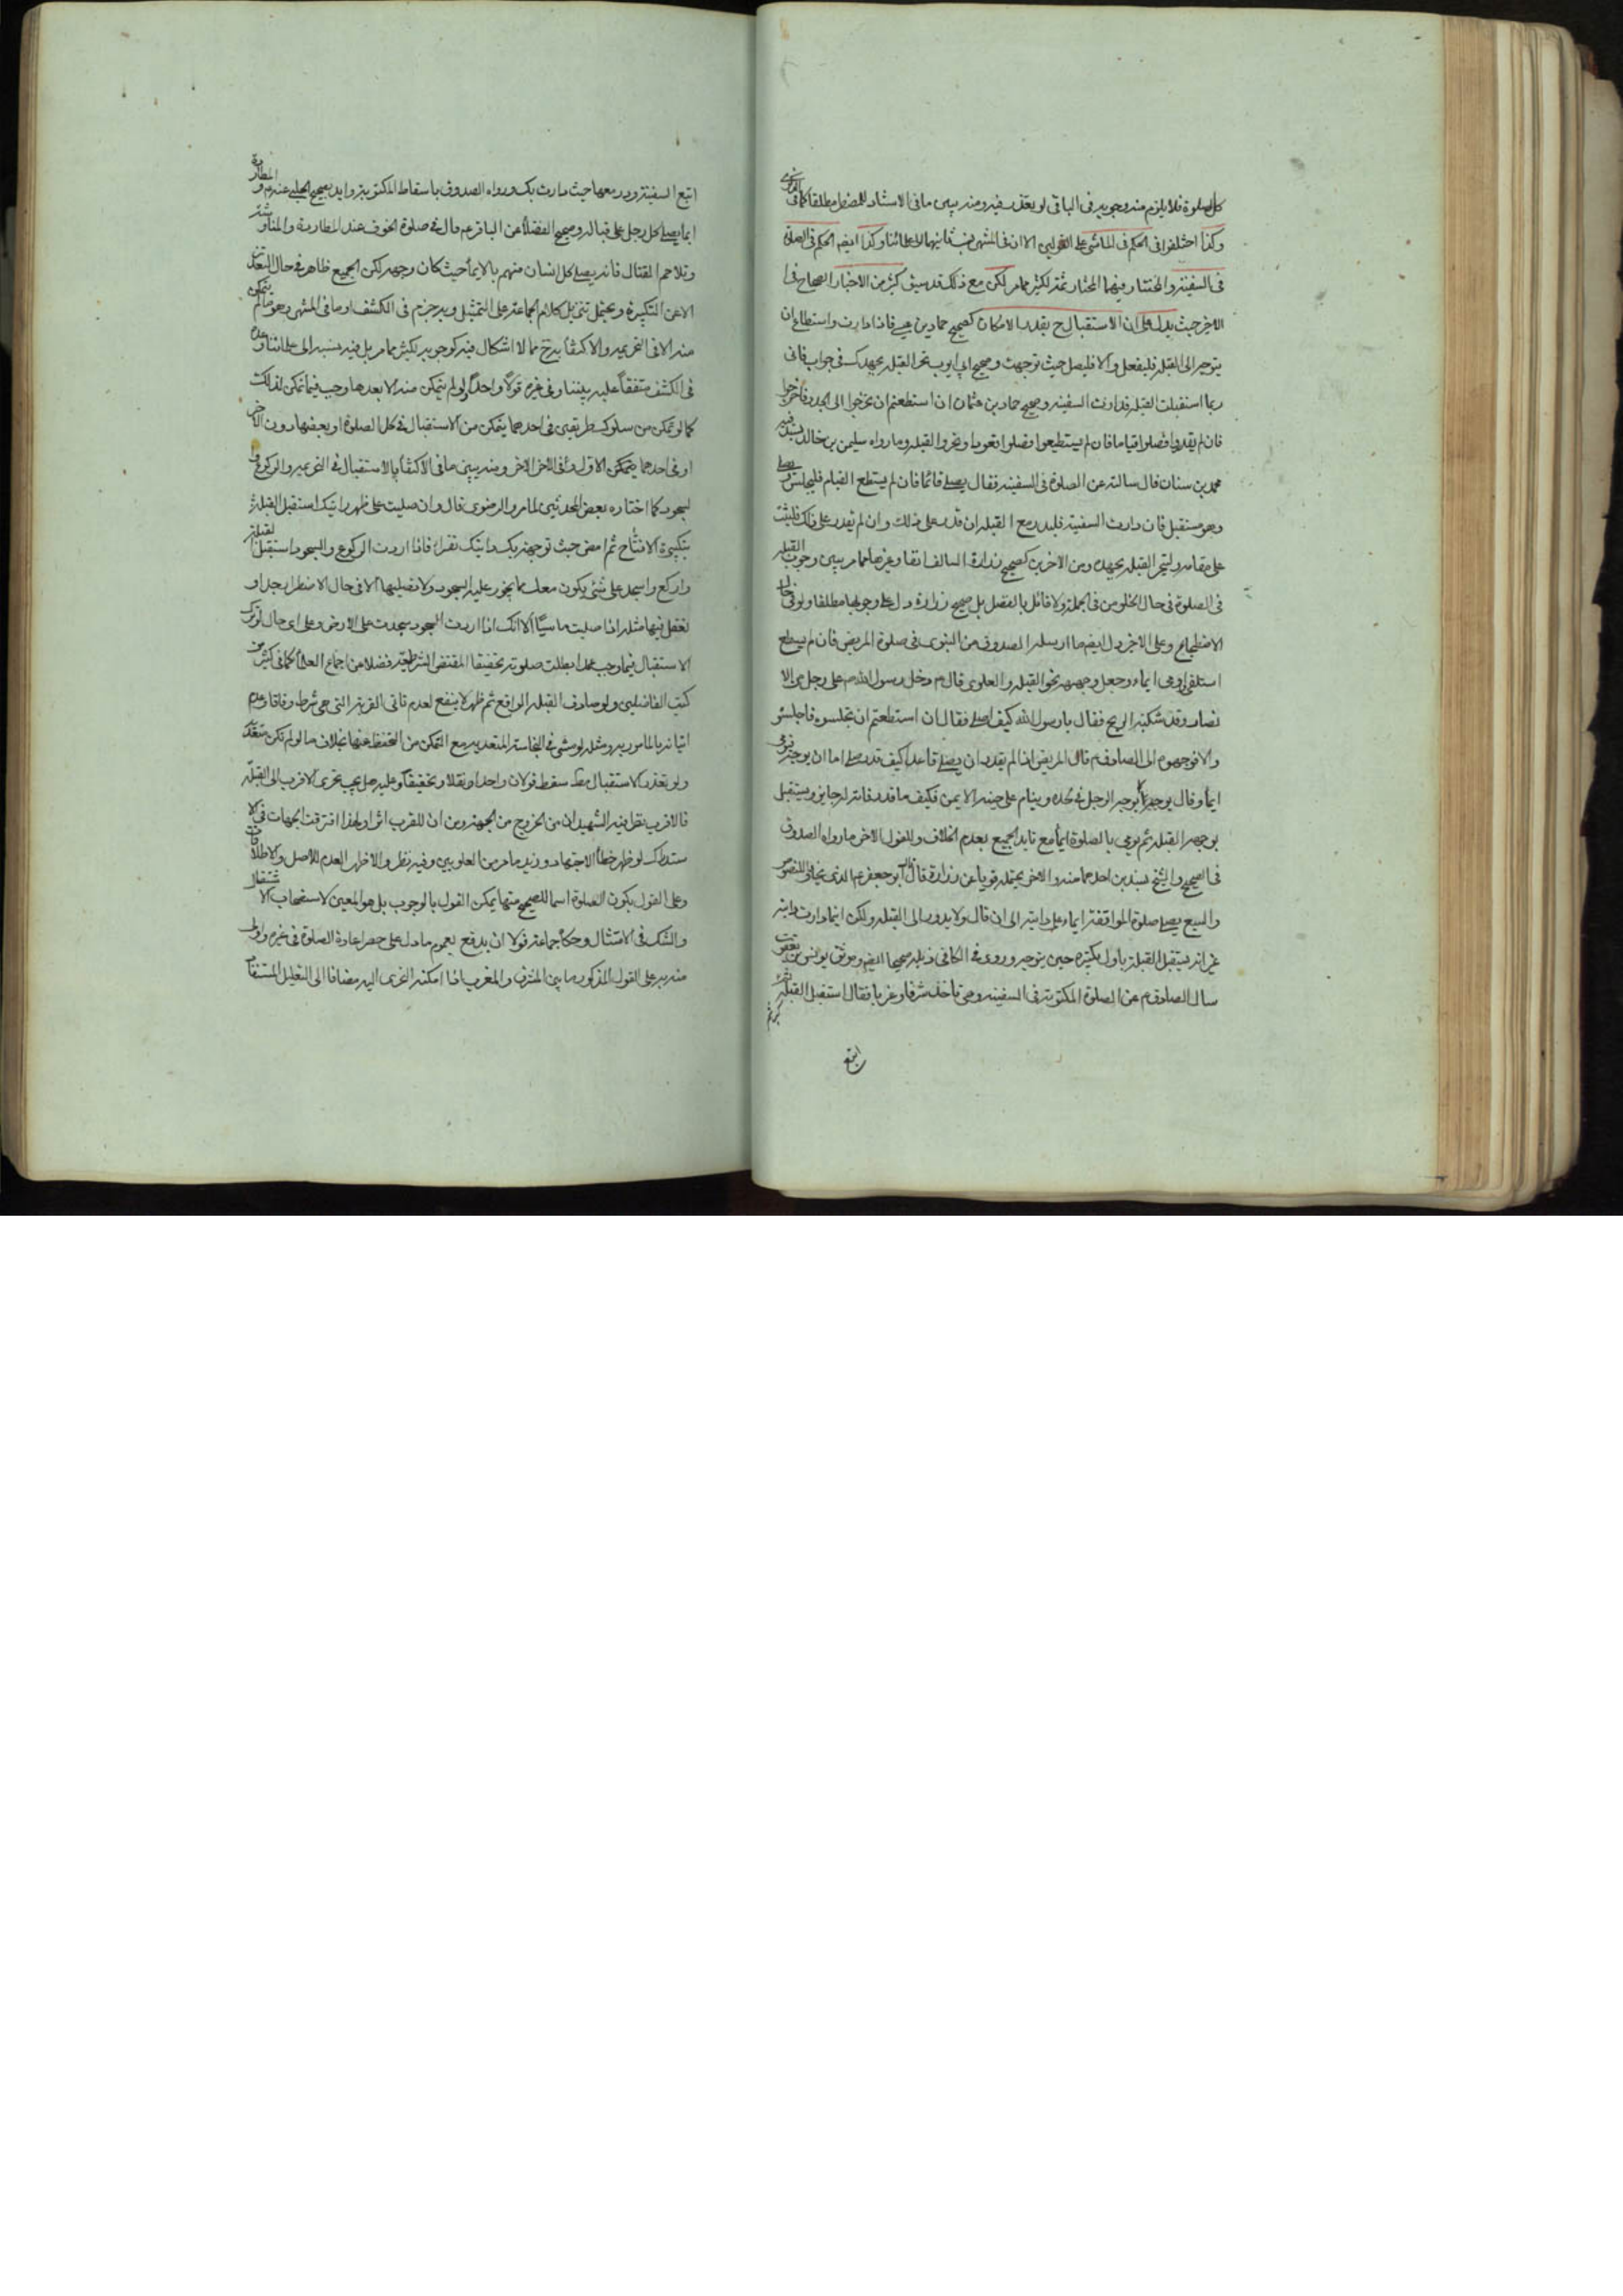 كل الصلوة فلا يلزم منه وجوبه في الباقي لو تعذر فيه ومنه يبين ما في الاستناد للمفصل مطلقا كما في
وكذا اختلفوا في الحكم في الماشي على القولين الا ان في المنتهى نسب ثانيهما الى علمائنا وكذا ايضا الحكم في الصلوة
في السفينة والمختار فيهما المختار ثمة لكثير مما مر لكن مع ذلك قد سبق كثير من الاخبار الصحاح في ا
لاخير حيث يدل على ان الاستقبال ح بقدر الامكان كصحيح حماد بن عيسى فاذا دارت واستطاع ان
يتوجه الى القبلة فليفعل والا فليصل حيث توجهت وصحيح ابي ايوب تحر القبلة بجهدك في جواب فاني
ربما استقبلت القبلة فدارت السفينة وصحيح حماد بن عثمان ان استطعتم ان تخرجوا الى الجدد فاخرجوا
فان لم تقدروا فصلوا قياما فان لم يستطيعوا فصلوا قعودا وتحروا القبلة وما رواه سليمن بن خالد بسند فيه
محمد بن سنان قال سالته عن الصلوة في السفينة فقال يصلي قائما فان لم يستطع القيام فليجلس ويصلي
وهو مستقبل فان دارت السفينة فليدر مع القبلة ان قدر على ذلك وان لم يقدر على ذلك فليثبت
على مقامه وليتحر القبلة بجهده ومن الاخرين كصحيح زرارة السالف انفا وغيرها مما مر يبين وجوب القبلة
في الصلوة في حال الخلو من في الجملة ولا قائل بالفصل بل صحيح زرارة دل على وجوبها مطلقا ولو في حال
الاضطجاع وعلى الاخير دل ايضا ما ارسله الصدوق من النبوي في صلوة المريض فان لم يستطع
استلقى واومى ايماء وجعل وجهه نحو القبلة والعلوي قال م دخل رسول الله ص على رجل من الا
نصار وقد شبكته الريح فقال يا رسول الله كيف اصلي فقال ان استطعتم ان تجلسوه فاجلسو
والا فوجهوه الى الصادق م قال المريض اذا لم يقدر ان يصلي قاعدا كيف قدر صلى اما ان يوجه فيومي
ايماء وقال يوجه كما يوجه الرجل في لحده وينام على جنبه الايمن فكيف ما قدر فانه له جايز ويستقبل
بوجهه القبلة ثم يومي بالصلوة ايماء مع تايد الجميع بعدم الخلاف وللقول الاخر ما رواه الصدوق
في الصحيح والشيخ بسندين احدهما منه والاخر يحتمله قويا عن زرارة قال قال ابو جعفر م الذي يخاف اللصوص
والسبع يصلي صلوة المواقفة ايماء على دابته الى ان قال ولا يدور الى القبلة ولكن اينما دارت دابته
غير انه يستقبل القبلة باول تكبيرة حين يتوجه وروى في الكافي ذيله صحيحا ايضا وموثق يونس بن يعقوب
سال الصادق م عن الصلوة المكتوبة في السفينة وهي تاخذ شرقا وغربا فقال استقبل القبلة ثم
كبر ثم
اتبع
اتبع السفينة ودر معها حيث دارت بك ورواه الصدوق باسقاط المكتوبة وايد بصحيح الحلبي عندهم والمطاردة
ايما يصلي كل رجل على حياله وصحيح الفضلاء عن الباقر م قال في صلوة الخوف عند المطاردة والمناوشة
وتلاحم القتال فانه يصلي كل انسان منهم بالايماء حيث كان وجهه لكن الجميع ظاهر في حال التعذر
الا عن التكبيرة ويحتمل تنزيل كلام الجماعة على التمثيل وبه جزم في الكشف او ما في المنتهى وهو ما لم يتمكن
منه الا في التحريمة والاكتفاء به ح مما لا اشكال فيه كوجوبه لكثير مما مر بل فيه نسبه الى علمائنا وعده
في الكشف متفقا عليه بيننا وفي غيره قولا واحدا ولو لم يتمكن منه الا بعدها وجب فيما تمكن لذلك
كما لو تمكن من سلوك طريقين في احدهما يتمكن من الاستقبال في كل الصلوة او بعضها دون الاخر
او في احدهما يتمكن الاول وفي الاخر الاخر ومنه يبين ما في الاكتفاء بالاستقبال في التحريمة والركوع وا
لسجود كما اختاره بعض المحدثين لما مر والرضوي قال وان صليت على ظهر دابتك استقبل القبلة
بتكبيرة الافتتاح ثم امض حيث توجهت بك دابتك تقرا فاذا اردت الركوع والسجود استقبل القبلة
واركع واسجد على شئ يكون معك مما يجوز عليه السجود ولا تصليها الا في حال الاضطرار جدا و
تفعل فيها مثله اذا صليت ماشيا الا انك اذا اردت السجود سجدت على الارض وعلى اي حال لو ترك
الاستقبال فيما وجب عمدا بطلت صلوته تحقيقا لمقتضى الشرطية فضلا من اجماع العلماء كما في كثير من
كتب الفاضلين ولو صادف القبلة الواقع ثم ظهر لا ينفع لعدم تاتي القربة التي هي شرط وفاقا وعدم
اتيانه بالمامور به ومثله لو مشى في النجاسة المتعدية مع التمكن من التحفظ عنها بخلاف ما لو لم تكن متعدية
ولو تعذر الاستقبال سقط قولا واحدا ونقلا وتحقيقا وعليه هل يجب تحري الاقرب الى القبلة
فالاقرب نظر فيه الشهيد ان من الخروج من الجهة ومن ان للقرب اثرا ولهذا افترقت الجهات في الا
ستدراك لو ظهر خطأ الاجتهاد وزيد ما مر من العلويين وفيه نظر والاظهر العدم للاصل والاطلاقات
وعلى القول بكون الصلوة اسما للصحيح منها يمكن القول بالوجوب بل هو المعين لاستصحاب الاشتغال
والشك في الامتثال وحكاه جماعة قولا ان يدفع بعموم ما دل على حصر اعادة الصلوة في غيره واولى
منه به على القول المذكور ما بين المشرق والمغرب اذا امكنه التحري اليه مضافا الى التعليل المستفاد